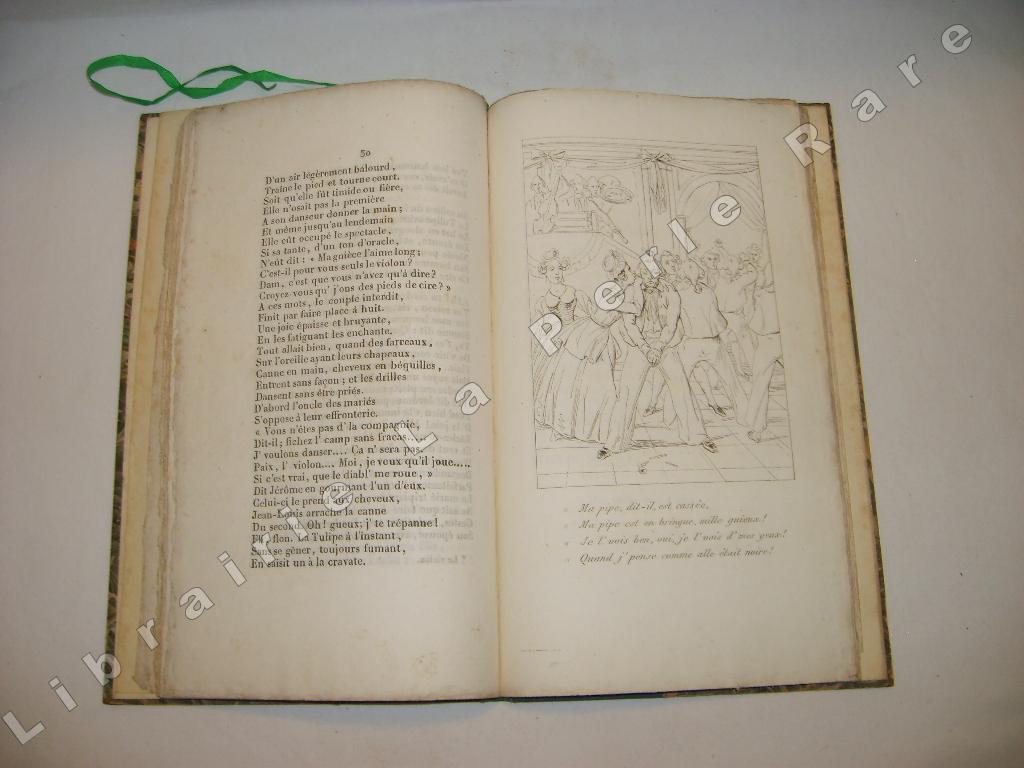 50
D'un air légèrement balourd,
Traîne le pied et tourne court.
Soit qu'elle fût timide ou fière,
Elle n'osait pas la première
A son danseur donner la main;
Et même jusqu'au lendemain
Elle eût occupé le spectacle,
Si sa tante, d'un ton d'oracle,
N'eût dit: « Ma gnièce l'aime long;
C'est-il pour vous seuls le violon?
Dam, c'est que vous n'avez qu'à dire?
Croyez-vous qu' j'ons des pieds de cire? »
A ces mots, le couple interdit,
Finit par faire place à huit.
Une joie épaisse et bruyante,
En les fatiguant les enchante.
Tout allait bien, quand des farceaux,
Sur l'oreille ayant leurs chapeaux,
Canne en main, cheveux en béquilles,
Entrent sans façon; et les drilles
Dansent sans être priés.
D'abord l'oncle des mariés
S'oppose à leur effronterie.
« Vous n'êtes pas d'la compagnie,
Dit-il; fichez l' camp sans fracas.....
J' voulons danser.... Ça n' sera pas.
Paix, l' violon.... Moi, je veux qu'il joue.....
Si c'est vrai, que le diabl' me roue, »
Dit Jérôme en gourmant l'un d'eux.
Celui-ci le prend aux cheveux,
Jean-Louis arrache la canne
Du second. Oh! gueux; j' te trépanne!
Eh! flon. La Tulipe à l'instant,
Sans se gêner, toujours fumant,
En saisit un à la cravate.
« Ma pipe, dit-il, est cassée,
« Ma pipe est en bringue, mille guieux!
« Je l' vois ben, oui, je l' vois d' mes yeux!
« Quand j' pense comme alle était noire!
Librairie La Perle Rare